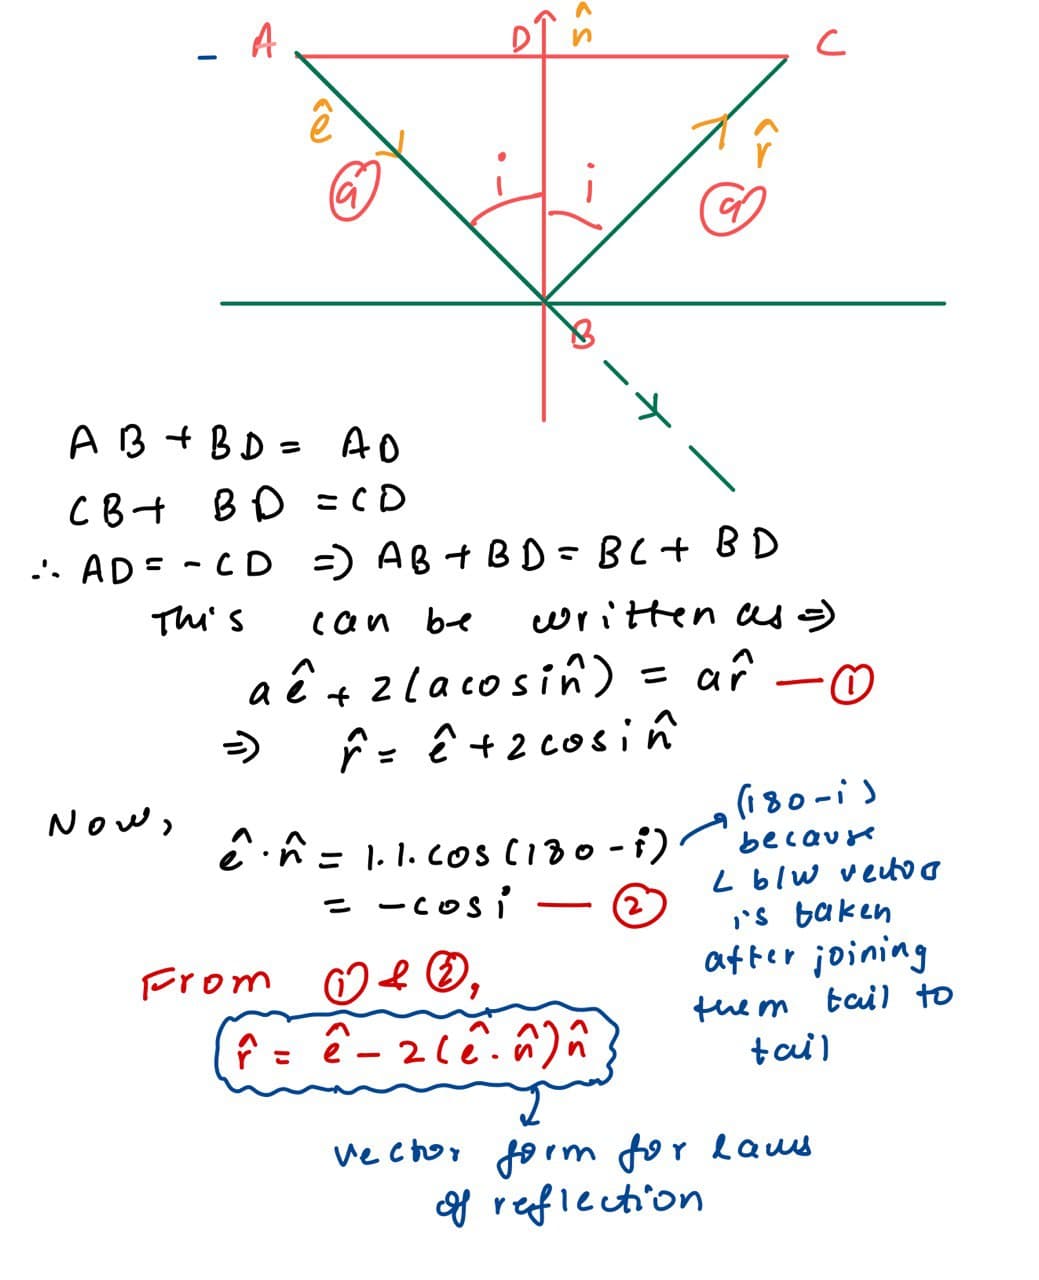 - A D n̂ C
ê r̂
a i i a
B
AB + BD = AD
CB + BD = CD
∴ AD = - CD ⇒ AB + BD = BC + BD
This can be written as ⇒
a ê + 2(a cos i n̂) = a r̂ — ①
⇒ r̂ = ê + 2 cos i n̂
Now,
ê . n̂ = 1.1. cos (180 - i)
= - cos i — ②
(180 - i)
because
∠ b/w vector
is taken
after joining
them tail to
tail
From ① & ②,
r̂ = ê - 2(ê . n̂) n̂
vector form for laws
of reflection